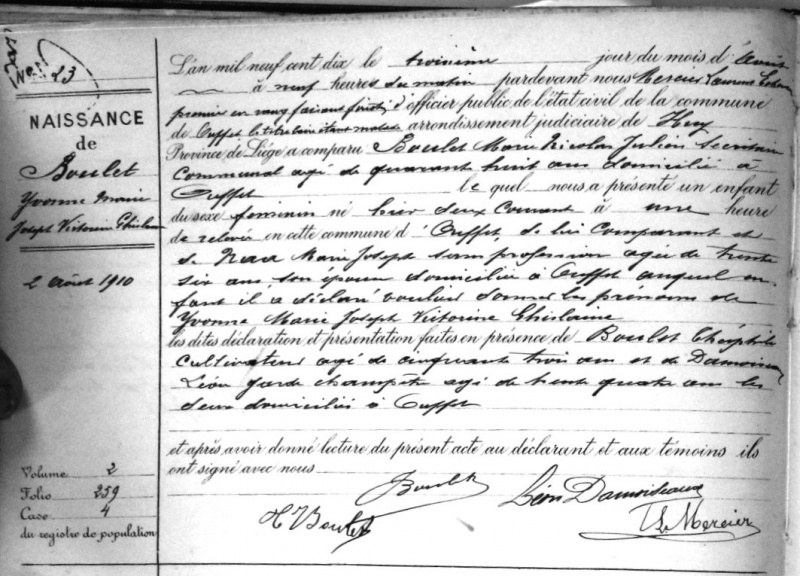 No. 23
NAISSANCE
de
Boulet
Yvonne Marie
Joseph Victorine Ghislaine
2 Août 1910
Volume 2
Folio 259
Case 4
du registre de population
L'an mil neuf cent dix le troisième jour du mois d'Août
à neuf heures du matin pardevant nous Mercier Laurent
premier en rang faisant fonctions d'officier public de l'état civil de la commune
de Ouffet le titulaire étant malade arrondissement judiciaire de Huy
Province de Liége a comparu Boulet Marie Nicolas Julien Secrétaire
communal agé de quarante huit ans domicilié à
Ouffet lequel nous a présenté un enfant
du sexe féminin né hier deux courant à une heure
de relevée en cette commune d'Ouffet, de lui comparant et
de Marie Joseph sans profession agée de trente
six ans, son épouse domiciliée à Ouffet auquel en-
fant il a déclaré vouloir donner les prénoms de
Yvonne Marie Joseph Victorine Ghislaine
les dites déclaration et présentation faites en présence de Boulet Théophile
cultivateur agé de cinquante trois ans et de Damoiseau
Léon garde champêtre agé de trente quatre ans les
deux domiciliés à Ouffet
et après avoir donné lecture du présent acte au déclarant et aux témoins ils
ont signé avec nous
Boulet Léon Damoiseaux
Boulet L. Mercier